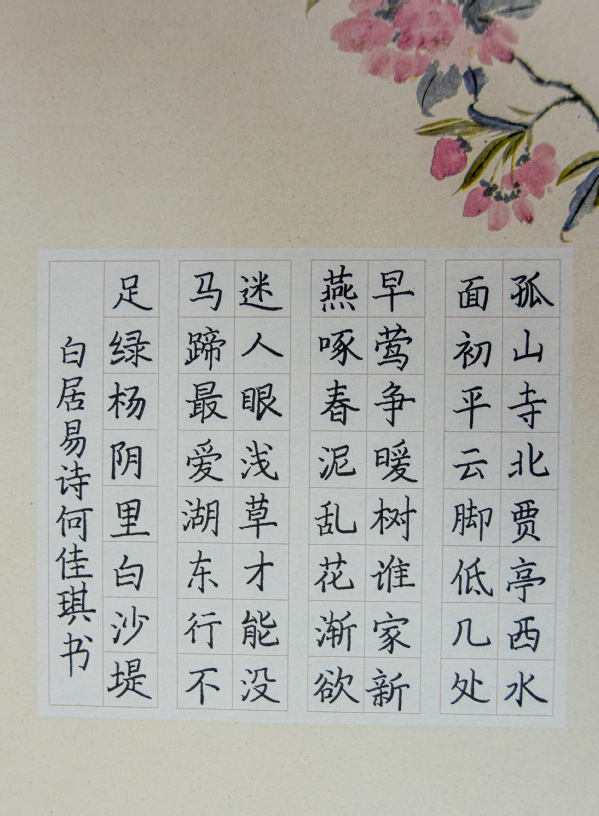 孤山寺北贾亭西水
面初平云脚低几处
早莺争暖树谁家新
燕啄春泥乱花渐欲
迷人眼浅草才能没
马蹄最爱湖东行不
足绿杨阴里白沙堤
白居易诗何佳琪书